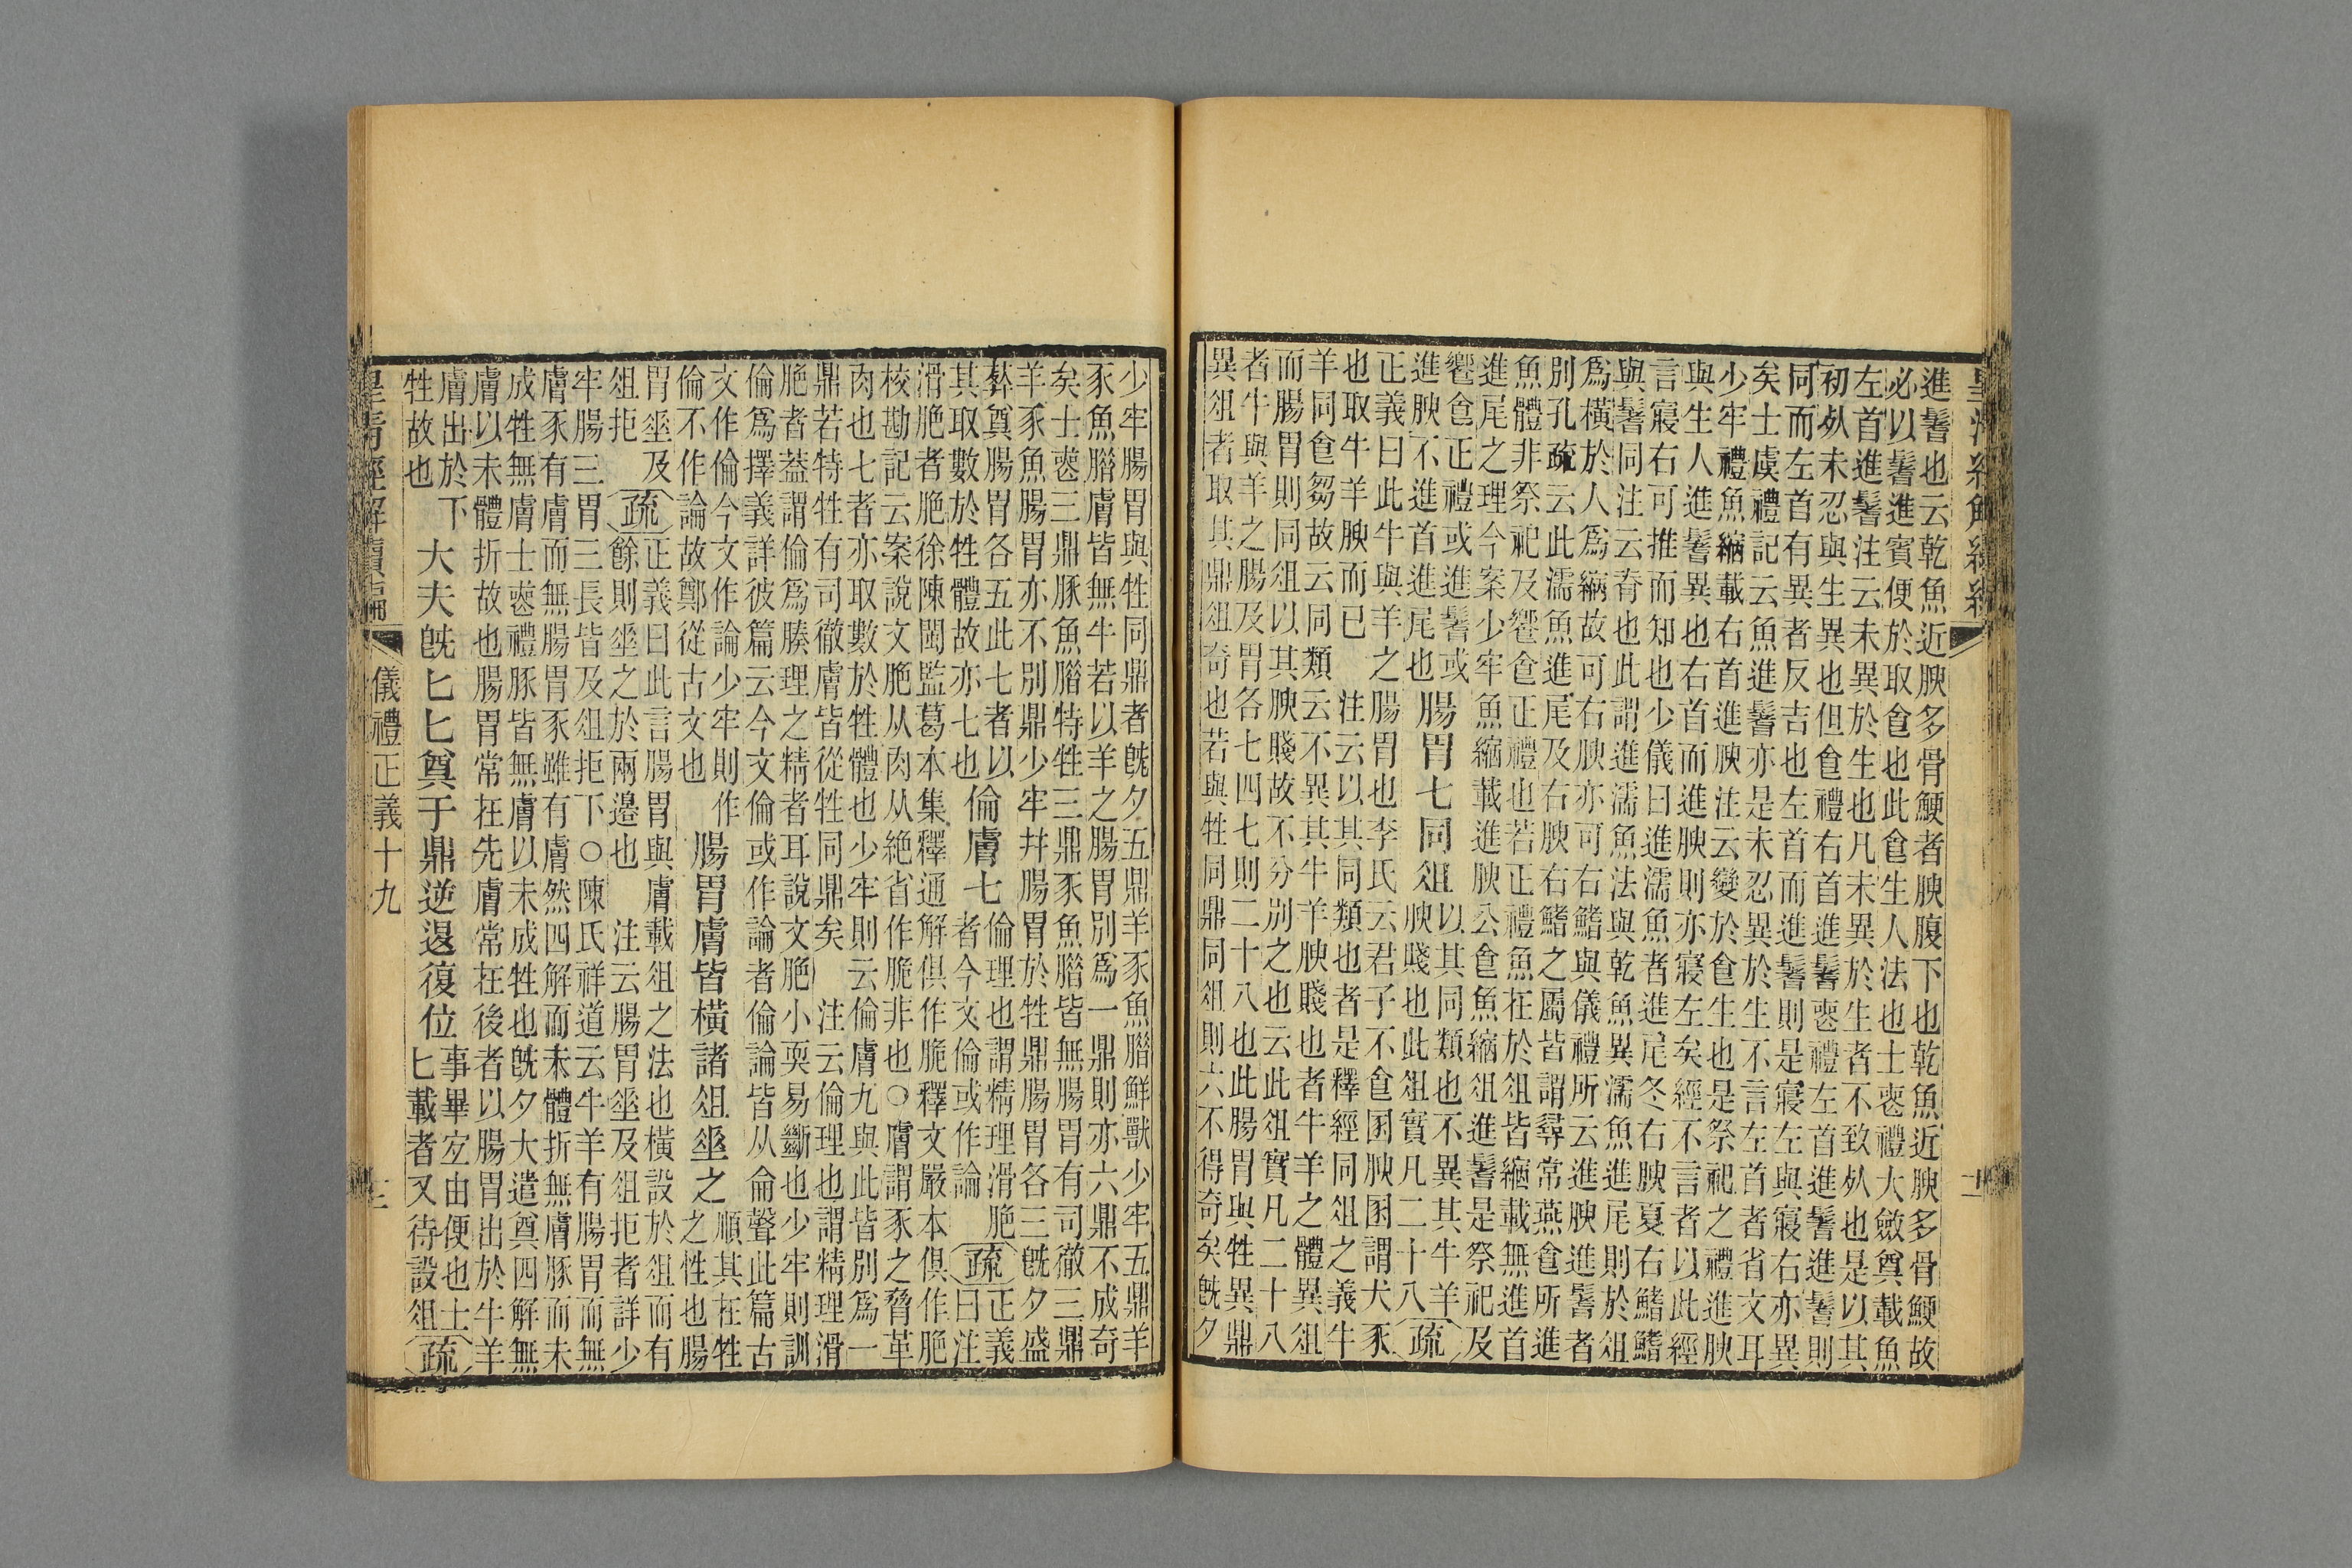 皇清經解續編
進鬐也云乾魚近腴多骨鯁者腴腹下也乾魚近腴多骨鯁故
必以鬐進賓便於取食也此食生人法也士喪禮大斂奠載魚
左首進鬐注云未異於生也凡未異於生者不致死也是以其
初死未忍與生異也但食禮右首進鬐喪禮左首進鬐進鬐則
同而左首有異者反吉也左首而進鬐則是寢左與寢右亦異
矣士虞禮記云魚進鬐亦是未忍異於生不言左首者省文耳
少牢禮魚縮載右首進腴注云變於食生也是祭祀之禮進腴
與生人進鬐異也右首而進腴則亦寢左矣經不言者以此經
言寢右可推而知也少儀曰進濡魚者進尾冬右腴夏右鰭鰭
與鬐同注云脊也此謂進濡魚法與乾魚異濡魚進尾則於俎
爲橫於人爲縮故可右腴亦可右鰭與儀禮所云進腴進鬐者
別孔疏云此濡魚進尾及右腴右鰭之屬皆謂尋常燕食所進
魚體非祭祀及饗食正禮也若正禮魚在於俎皆縮載無進首
進尾之理今案少牢魚縮載進腴公食魚縮俎進鬐是祭祀及
饗食正禮或進鬐或
進腴不進首進尾也
腸胃七同俎
以其同類也不異其牛羊
腴賤也此俎實凡二十八
疏
正義曰此牛與羊之腸胃也李氏云君子不食圂腴圂謂犬豕
也取牛羊腴而已 注云以其同類也者是釋經同俎之義牛
羊同食芻故云同類云不異其牛羊腴賤也者牛羊之體異俎
而腸胃則同俎以其腴賤故不分別之也云此俎實凡二十八
者牛與羊之腸及胃各七四七則二十八也此腸胃與牲異鼎
異俎者取其鼎俎奇也若與牲同鼎同俎則六不得奇矣既夕
少牢腸胃與牲同鼎者既夕五鼎羊豕魚腊鮮獸少牢五鼎羊
豕魚腊膚皆無牛若以羊之腸胃別爲一鼎則亦六鼎不成奇
矣士喪三鼎豚魚腊特牲三鼎豕魚腊皆無腸胃有司徹三鼎
羊豕魚腸胃亦不別鼎少牢幷腸胃於牲鼎腸胃各三既夕盛
葬奠腸胃各五此七者以
其取數於牲體故亦七也
倫膚七
倫理也謂精理滑脃
者今文倫或作論
疏
正義
曰注
滑脃者脃徐陳閩監葛本集釋通解俱作脆釋文嚴本俱作脃
校勘記云案說文脃从肉从絕省作脆非也○膚謂豕之脅革
肉也七者亦取數於牲體也少牢則云倫膚九與此皆別爲一
鼎若特牲有司徹膚皆從牲同鼎矣 注云倫理也謂精理滑
脃者蓋謂倫爲腠理之精者耳說文脃小耎易斷也少牢則訓
倫爲擇義詳彼篇云今文倫或作論者倫論皆从侖聲此篇古
文作倫今文作論少牢則作
倫不作論故鄭從古文也
腸胃膚皆橫諸俎垂之
順其在牲
之性也腸
胃垂及
俎拒
疏
正義曰此言腸胃與膚載俎之法也橫設於俎而有
餘則垂之於兩邊也 注云腸胃垂及俎拒者詳少
牢腸三胃三長皆及俎拒下○陳氏祥道云牛羊有腸胃而無
膚豕有膚而無腸胃豕雖有膚然四解而未體折無膚豚而未
成牲無膚士喪禮豚皆無膚以未成牲也既夕大遣奠四解無
膚以未體折故也腸胃常在先膚常在後者以腸胃出於牛羊
膚出於下
牲故也
大夫既匕匕奠于鼎逆退復位
事畢宐由便也士
匕載者又待設俎
疏
皇清經解續編 儀禮正義十九